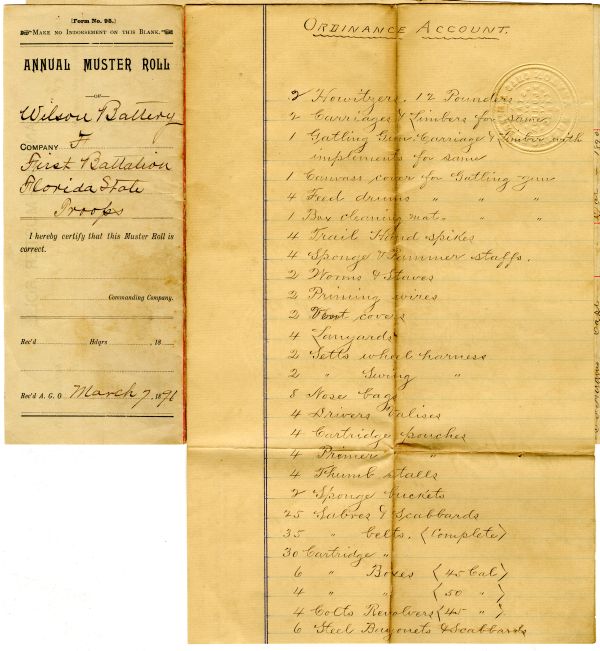 (Form No. 95.)
MAKE NO INDORSEMENT ON THIS BLANK.
ANNUAL MUSTER ROLL
OF
Wilson Battery
COMPANY F
First Battalion
Florida State
Troops
I hereby certify that this Muster Roll is
correct.
Commanding Company.
Rec'd Hdqrs 18
Rec'd A. G. O. March 7, 1891
ORDINANCE ACCOUNT.
2 Howitzers. 12 Pounders
2 Carriages & Limbers for same
1 Gatling Gun Carriage & Limber with
impliments for same
1 Canvass cover for Gatling gun
4 Feed drums " " "
1 Box cleaning mat. " "
4 Trail Hand spikes
4 Sponge & Rammer staffs.
2 Worms & Staves
2 Priming wires
2 Vent covers
4 Lanyards
2 Setts wheel harness
2 " Swing "
8 Nose bags
4 Drivers Valises
4 Cartridge pouches
4 Primer "
4 Thumb stalls
2 Sponge buckets
25 Sabres & Scabbards
35 " belts. (Complete)
30 Cartridge "
6 " Boxes (45 Cal)
4 " " (50 ")
4 Colts Revolvers (45 ")
6 Steel Bayonets & Scabbards